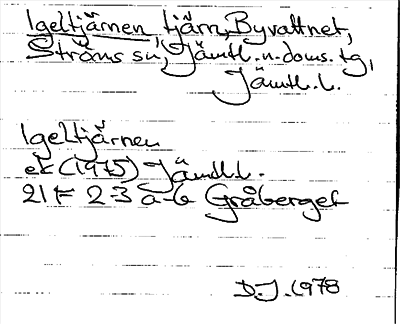 Igeltjärnen tjärn, Byvattnet,
Ströms sn, Jämtl. n. doms. tg,
Jämtl. l.
Igeltjärnen
ek (1975) Jämtl. l.
21 F 2-3 a-b Gråberget
D.J. 1978